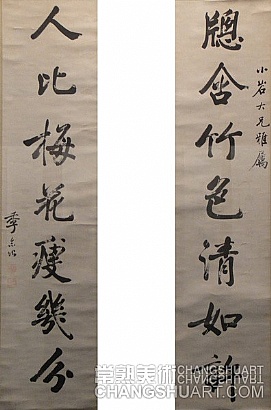 牕含竹色清如許
小岩大兄雅屬
人比梅花瘦幾分
季念詒
常熟美術
CHANGSHUART.COM